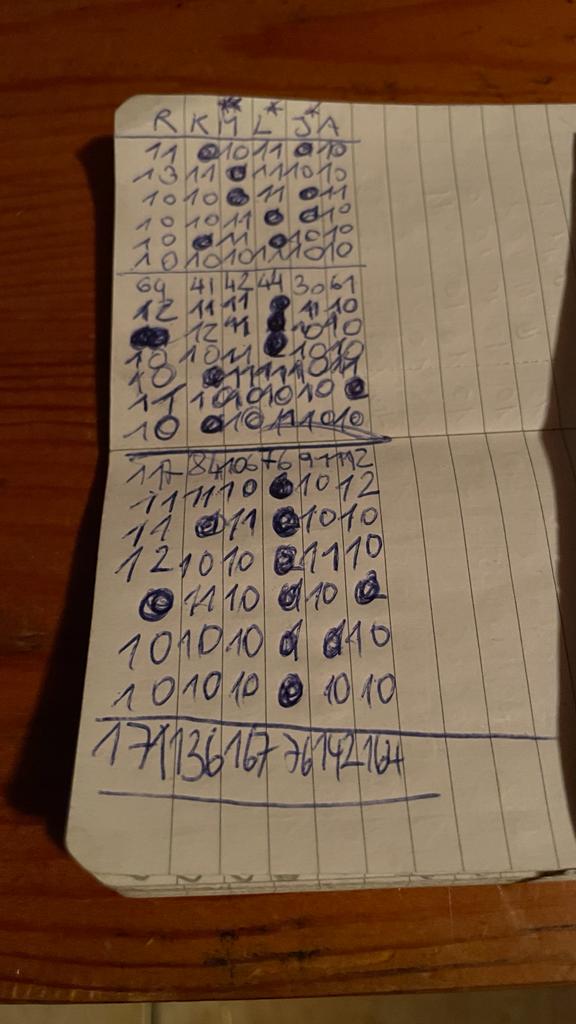 R K M* L* J* A
11 10 11 10
13 11 11 10 10
10 10 11 11
10 10 11 10
10 11 10 10
10 10 10 11 10 10
64 41 42 44 30 61
12 11 11 11 10
12 11 10 10
10 10 11 10 10
10 11 11 10 11
11 10 10 10 10
10 10 11 10 10
117 84 106 76 91 112
11 11 10 10 12
11 11 10 10
12 10 10 11 10
11 10 10
10 10 10 10
10 10 10 10 10
171 136 167 76 142 164